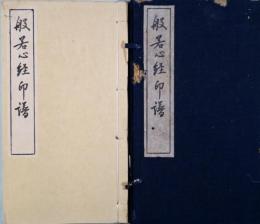 般若心经印谱
般若心经印谱